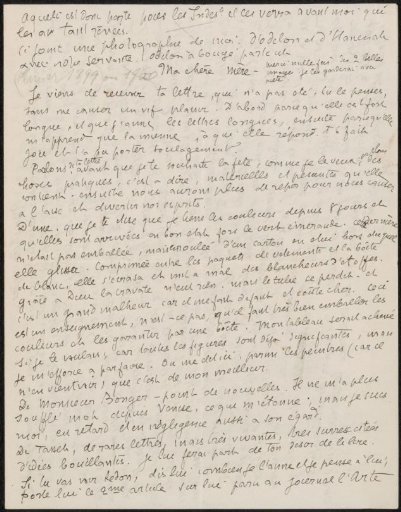 est donc parti pour les Indes et les verra avant moi qui
les ai tant rêvées.
Ci joint une photographie de moi. d'Odelon et d'Hanenah
avec notre servante. Odelon a bougé
Ma chère mère - merci mille fois des 2 belles
images. je les garderai avec
Je viens de recevoir ta lettre, qui n'a pas été, tu le penses,
sans me causer un vif plaisir. D'abord parce qu'elle est fort
longue, et que j'aime les lettres longues, ensuite parcequ'elle
m'apprend que la mienne, à qui elle répond t'a fait
joie et t'a pu porter soulagement.
Parlons, avant que je te souhaite la fête, comme je le veux, des
choses pratiques, c'est à dire, matérielles et
ensuite nous aurons plus de repos pour nous causer
à l'aise et divertir nos esprits.
D'une, que je te dise que je tiens les couleurs depuis 8 jours et
qu'elles sont arrivées en bon état fors le vert émeraude. cette dernière
n'était pas emballée, d'un carton ou étui hors duquel
elle glissa. Comprimée entre les paquets de vêtements et la boîte
de blanc, elle s'écrasa et mit à mal des blancheurs d'étoffes.
grâce à Dieu la cravate n'eut rien. mais le tube se perdit et
c'est un grand malheur car il me fait défaut et coûte cher. Ceci
est un enseignement, n'est-ce pas, qu'il faut très bien emballer les
couleurs et les garantir par une boîte. Mon tableau serait achevé
si je le voulais, car toutes les figures sont déjà signifiantes, mais
je m'efforce à parfaire. On me dit ici parmi les peintres (car il
en vient voir, que c'est de mon meilleur.
De Monsieur Bonger - point de nouvelles. Il ne m'a plus
soufflé mot depuis Venise, ce qui m'étonne; mais je suis
moi, en retard et en négligence aussi à son égard.
De Tanch, de rares lettres, mais très vivantes, très surexcitées
d'idées bouillantes. Je lui ferai part de ton désir de le lire.
Si tu vas voir Redon, dis lui combien je l'aime et je pense à lui;
porte lui ce 2ème article sur lui paru au journal l'Arte